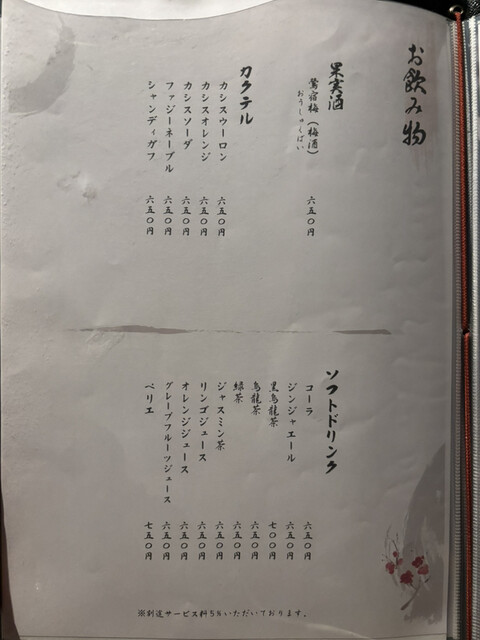 お飲み物
果実酒
鶯宿梅（梅酒） 六五〇円
おうしゅくばい
カクテル
カシスウーロン 六五〇円
カシスオレンジ 六五〇円
カシスソーダ 六五〇円
ファジーネーブル 六五〇円
シャンディガフ 六五〇円
ソフトドリンク
コーラ 六五〇円
ジンジャエール 六五〇円
黒烏龍茶 七〇〇円
烏龍茶 六五〇円
緑茶 六五〇円
ジャスミン茶 六五〇円
リンゴジュース 六五〇円
オレンジジュース 六五〇円
グレープフルーツジュース 六五〇円
ペリエ 七五〇円
※別途サービス料5%いただいております。